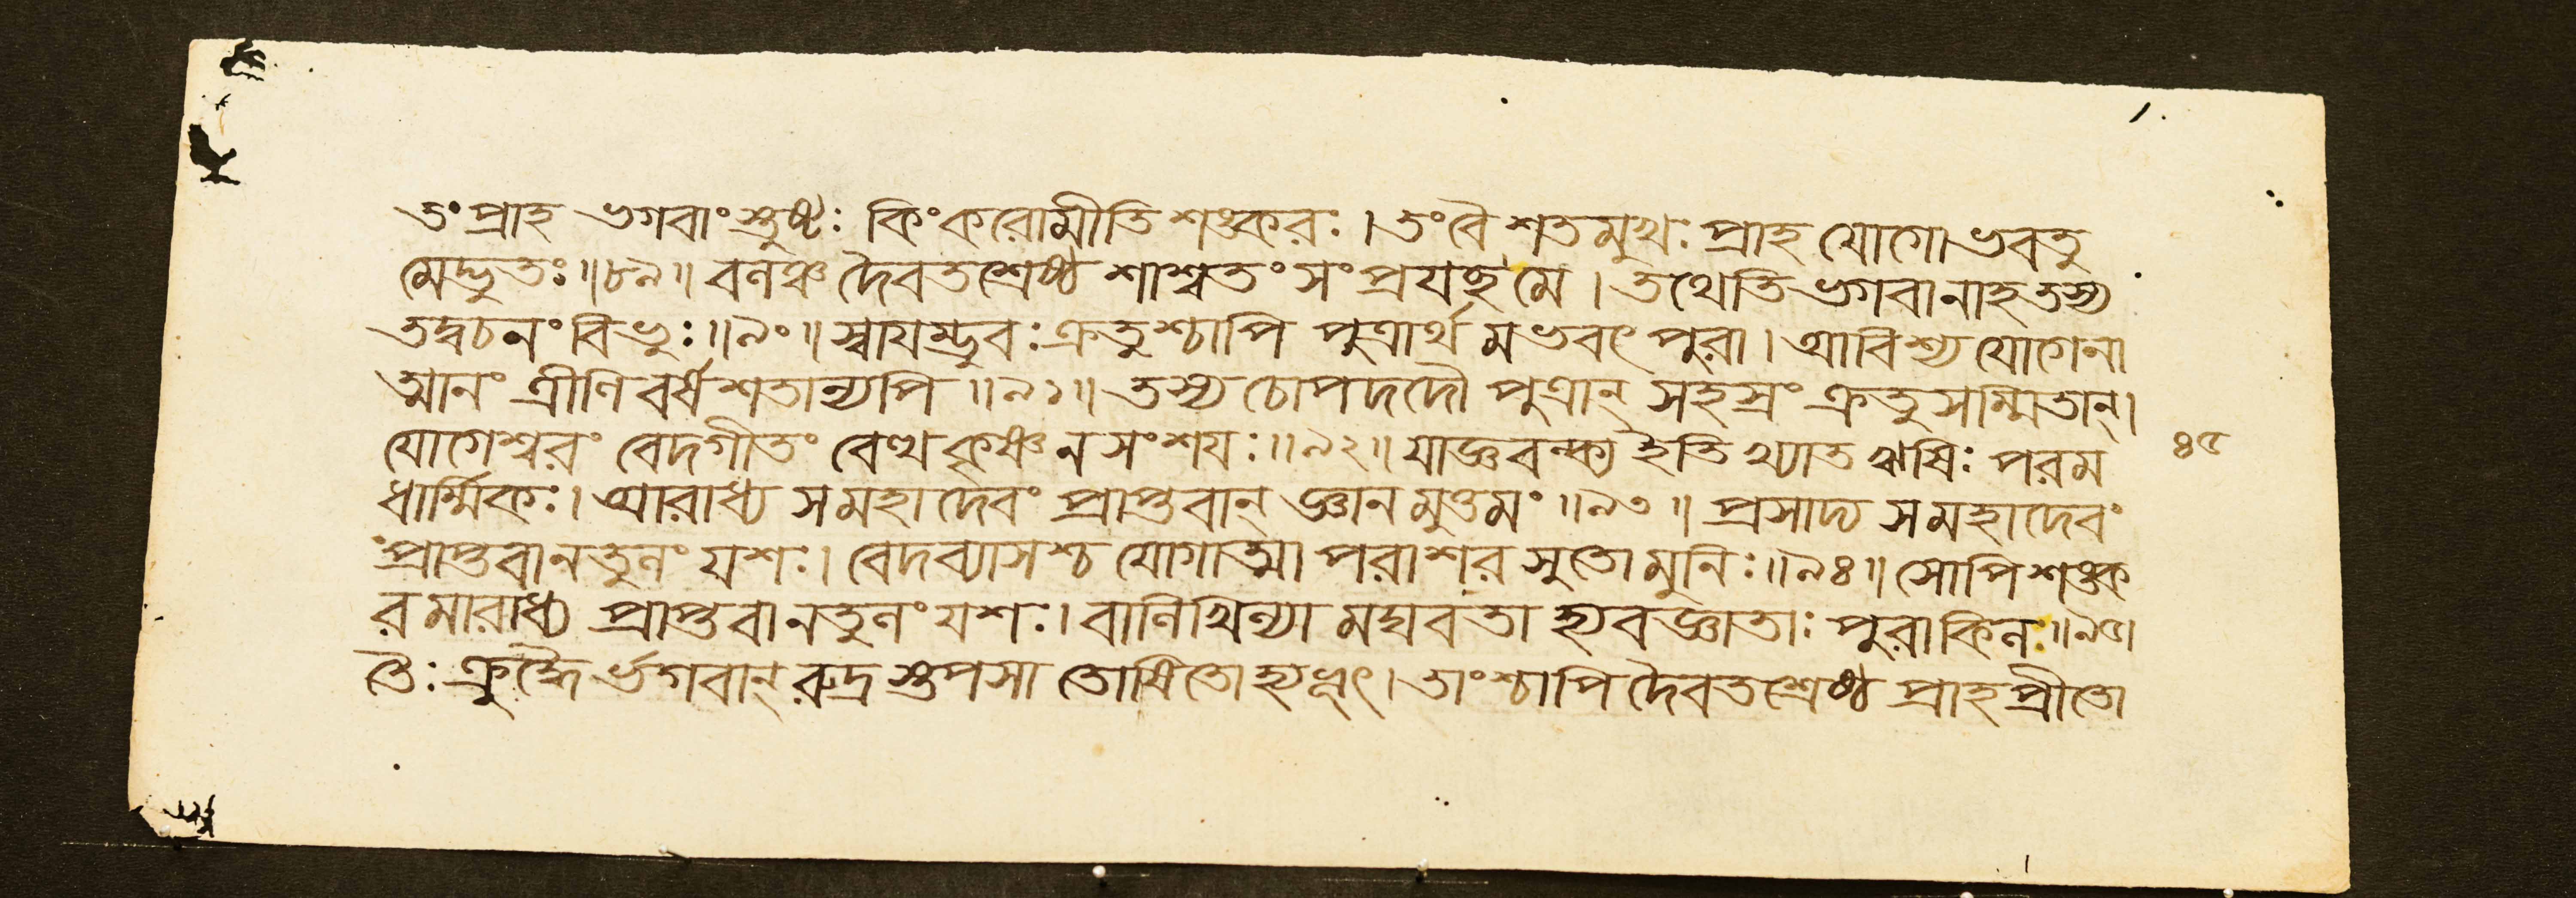 তং প্রাহ ভগবাংস্তুষ্টঃ কিং করোমীতি শঙ্করঃ। তং বৈ শতমুখঃ প্রাহ যোগো ভবতু
মেদ্ভুতঃ॥৮৯॥ বলঞ্চ দৈবতশ্রেষ্ঠ শাশ্বতং সংপ্রযচ্ছ মে। তথেতি ভগবানাহ তস্য
তদ্বচনং বিভুঃ॥৯০॥ স্বাযম্ভুবঃ ক্রতুশ্চাপি পুত্রার্থমভবৎ পুরা। আবিশ্য যোগেনা
ত্মানং ত্রীণি বর্ষশতান্যপি॥৯১॥ তস্য চোপদদৌ পুত্রান্ সহস্রং ক্রতুসম্মিতান্।
যোগেশ্বরং বেদগীতং বেত্থ কৃষ্ণ ন সংশযঃ॥৯২॥ যাজ্ঞবল্ক্য ইতি খ্যাত ঋষিঃ পরম ৪৫
ধার্ম্মিকঃ। আরাধ্য স মহাদেবং প্রাপ্তবান্ জ্ঞানমুত্তমং॥৯৩॥ প্রসাদ্য স মহাদেবং
প্রাপ্তবানতুলং যশঃ। বেদব্যাসশ্চ যোগাত্মা পরাশরসুতো মুনিঃ॥৯৪॥ সোপি শঙ্ক
রমারাধ্য প্রাপ্তবানতুলং যশঃ। বালিখিল্যা মঘবতা হ্যবজ্ঞাতাঃ পুরা কিল॥৯৫।
তৈঃ ক্রুদ্ধৈর্ভগবান্ রুদ্রস্তপসা তোষিতো হ্যভূৎ। তাংশ্চাপি দৈবতশ্রেষ্ঠ প্রাহ প্রীতো